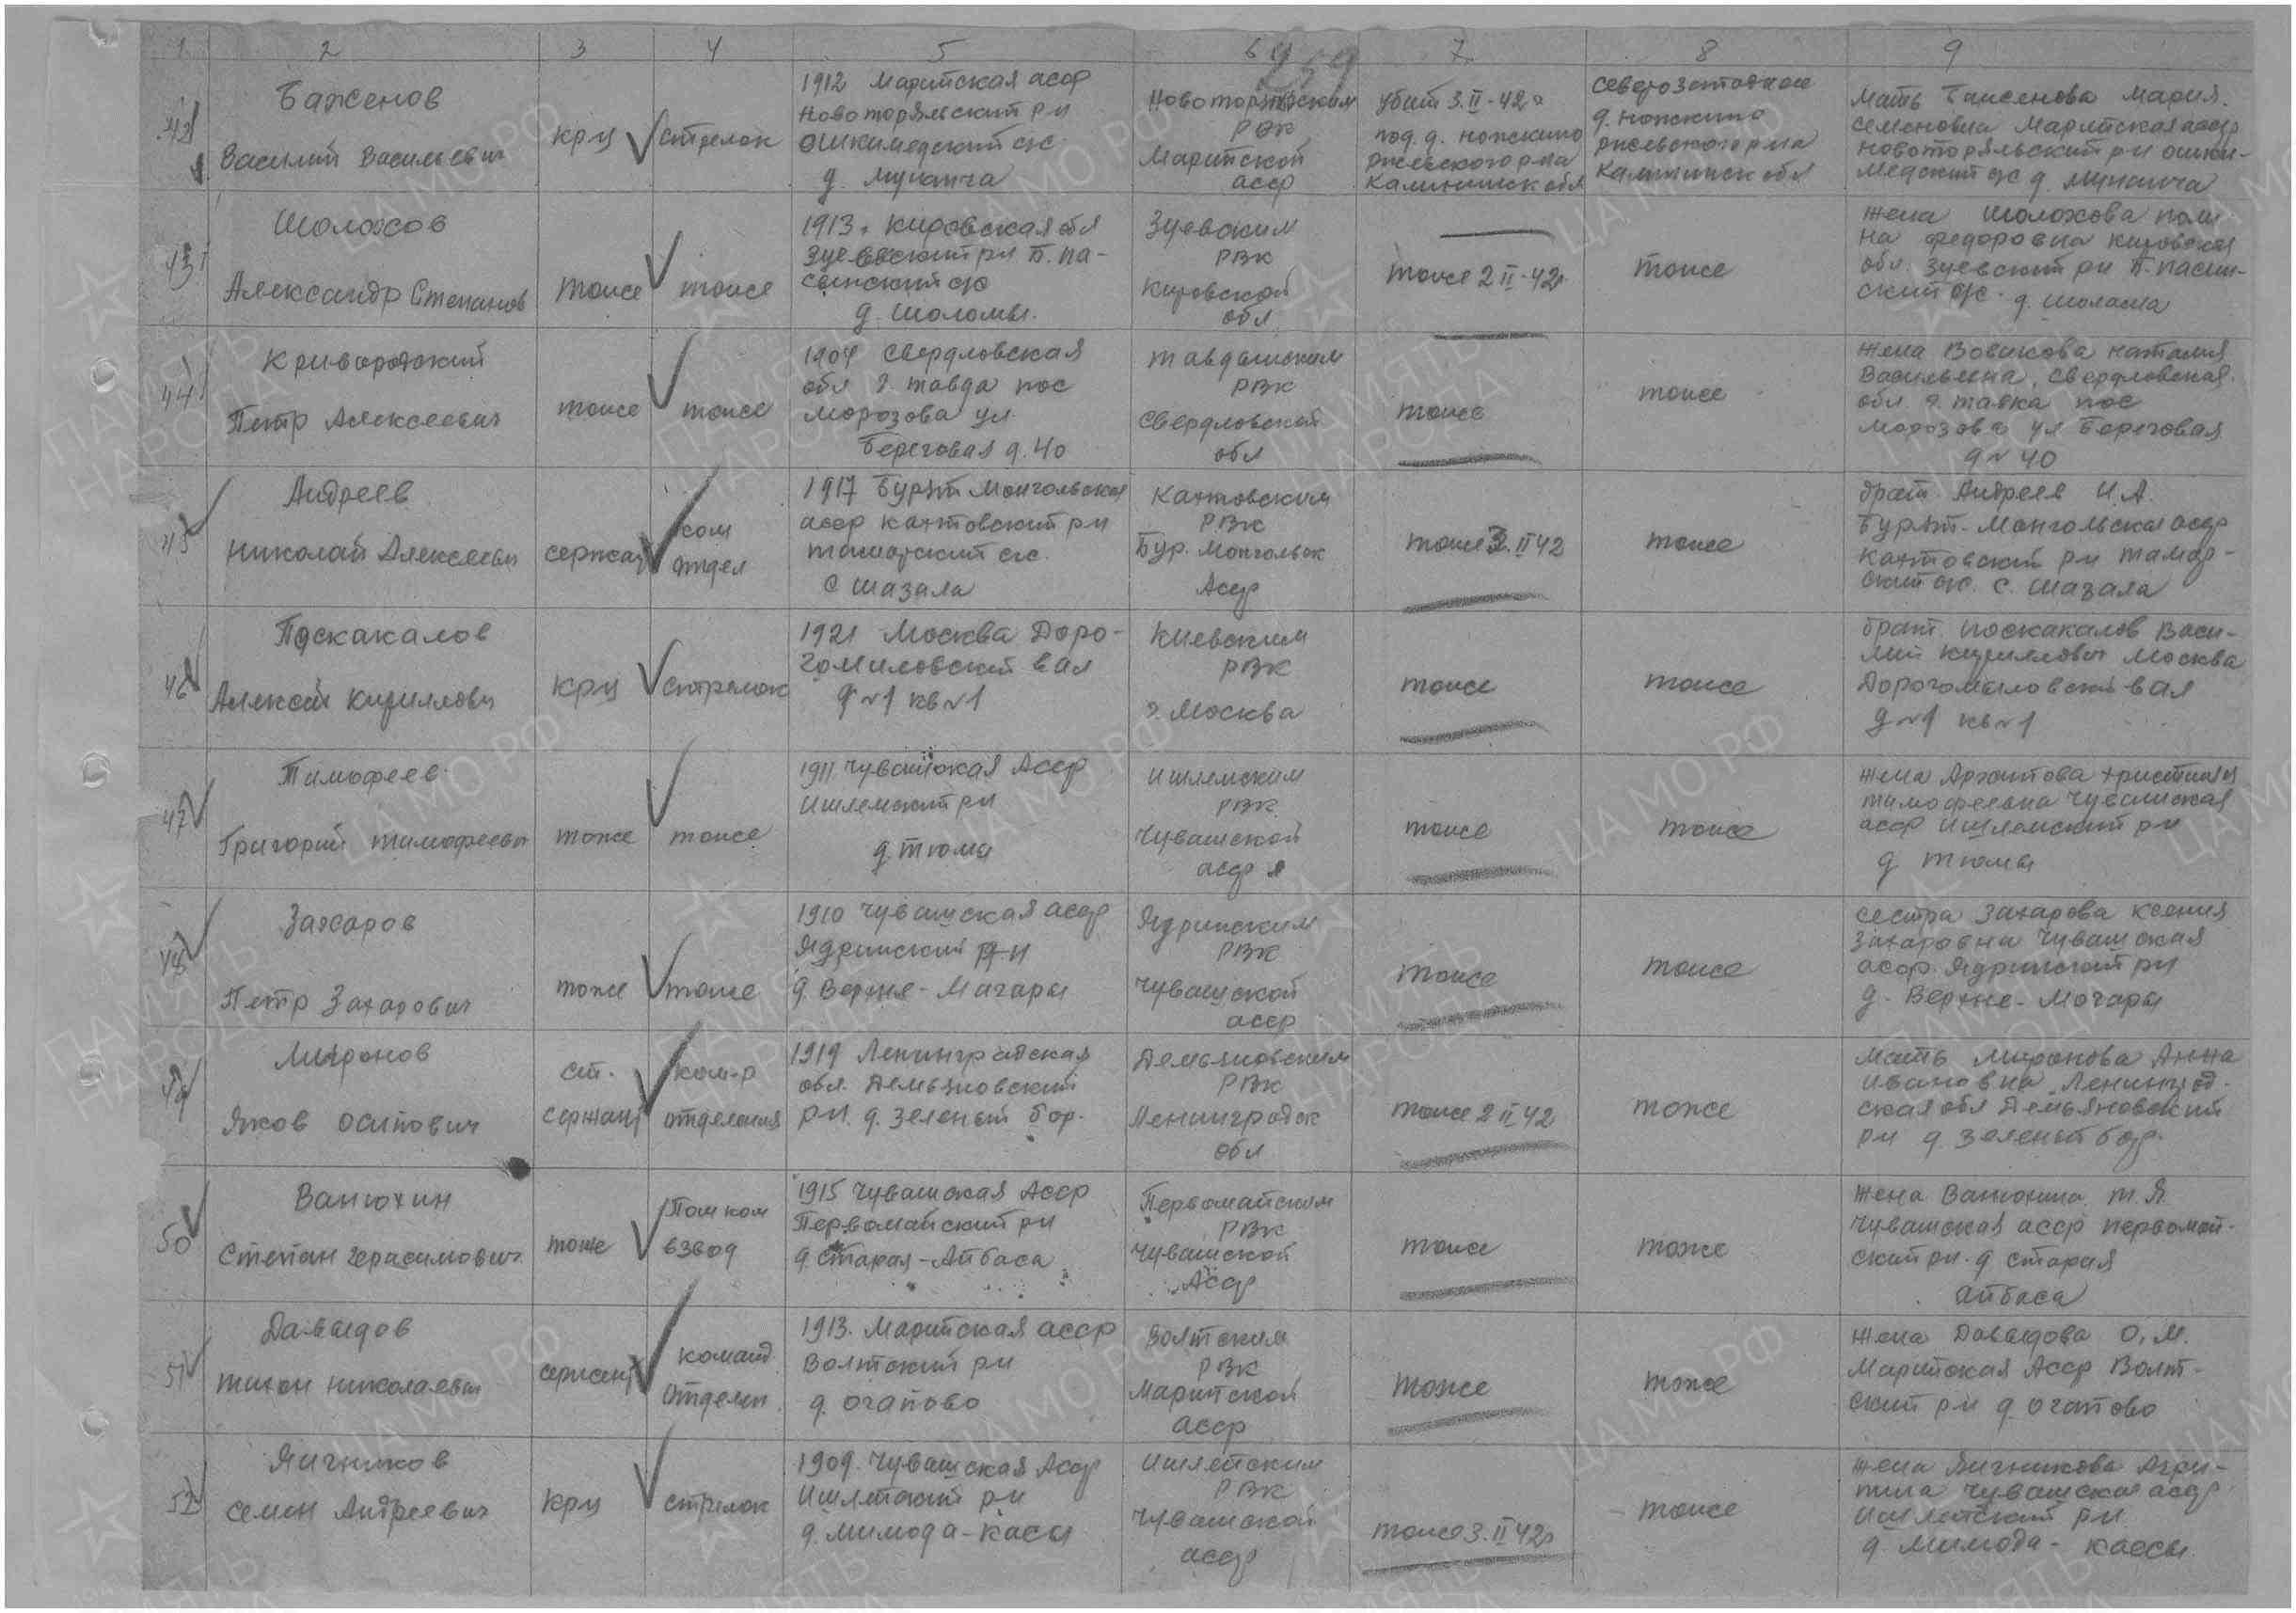 1 2 3 4 5 6 7 8 9
259
42
Баженов
Василий Васильевич
кр-ц
стрелок
1912 Марийская асср
Новоторъяльский р-н
ошкимедский с/с
д.
Новоторъяльским
РВК
Марийской
асср
убит 3.II-42г
под д. ножкино
ржевского р-на
Калининск обл
северозападнее
д. ножкино
ржевского р-на
Калининск обл
Мать Баженова Мария
семеновна Марийская асср
новоторъяльский р-н ошки-
медский с/с д.
43
Шолохов
Александр Степанов
тоже
тоже
1913г Кировская обл
Зуевский р-н Б. па-
синский с/с
д. Шоломы.
Зуевским
РВК
Кировской
обл
тоже 2 II-42г
тоже
Жена Шолохова поли-
на федоровна кировская
обл. Зуевский р-н Б. пасин-
ский с/с д.
44
Петр Алексеевич
тоже
тоже
1904 свердловская
обл г. тавда пос
Морозова ул.
Береговая д. 40
тавдинским
РВК
свердловской
обл
тоже
тоже
Жена Новикова наталия
Васильевна, свердловская
обл. г. тавка пос
морозова ул Береговая
д N 40
45
Андреев
Николай Алексеевич
сержан
ком
отдел
1917 Бурят Монгольская
асср кяхтовский р-н
с/с.
с шазала
Кяхтовским
РВК
Бур. Монгольск
Асср
тоже 3.II 42
тоже
брат. Андреев И.А.
Бурят-Монгольская асср
кяхтовский р-н тамар-
ский с/с. с. шазала
46
Поскакалов
Алексей Кириллович
крц
стрелок
1921 Москва Доро-
гомиловский вал
д N1 кв N1
Киевским
РВК
г. Москва
тоже
тоже
брат. поскакалов Васи-
лий кириллович Москва
Дорогомыловский вал
д N1 кв N1
47
Тимофеев
Григорий тимофеевич
тоже
тоже
1911 Чувашская Асср
Ишлейский р-н
д. тюмы
ишлейским
РВК
Чувашской
асср
тоже
тоже
Жена христиная
тимофеевна Чувашская
асср ишлейский р-н
д. тюмы
48
Захаров
Петр Захарович
тоже
тоже
1910 Чувашская асср
Ядринский р-н
д. Верхне-Магары
Ядринским
РВК
Чувашской
асср
тоже
тоже
сестра Захарова ксения
Захаровна Чувашская
асср. Ядринский р-н
д. Верхне-Мочары
49
Миронов
Яков осипович
ст.
сержант
ком-р
отделения
1919 Ленинградская
обл. Демьяновский
р-н. д. зеленый бор.
Демьяновским
РВК
Ленинградск
обл
тоже 2 II 42
тоже
Мать миронова Анна
ивановна Ленинград-
ская обл Демьяновский
р-н д зеленый бор.
50
Ванюхин
Степан герасимович
тоже
Пом ком
взвод
1915 Чувашская Асср
Первомайский р-н
д старая-Айбаса
Первомайским
РВК
Чувашской
Асср
тоже
тоже
Жена Ванюхина т. Я.
Чувашская асср первомай-
ский р-н. д старая
Айбаса
51
Давыдов
тихон николаевич
сержант
команд
отделен
1913. Марийская асср
Волтский р-н
д. Огапово
Волтским
РВК
Марийской
асср
тоже
тоже
Жена Давыдова О. М.
Марийская Асср Волт-
ский р-н д. Огапово
52
Яичников
семен Андреевич
крц
стрелок
1909. Чувашская Асср
Ишлейский р-н
д. мимода-касы
Ишлейским
РВК
Чувашской
асср
тоже 3.II 42г
тоже
Жена Яичникова Агри-
пина Чувашская асср
Ишлейский р-н
д. Мимода-кассы